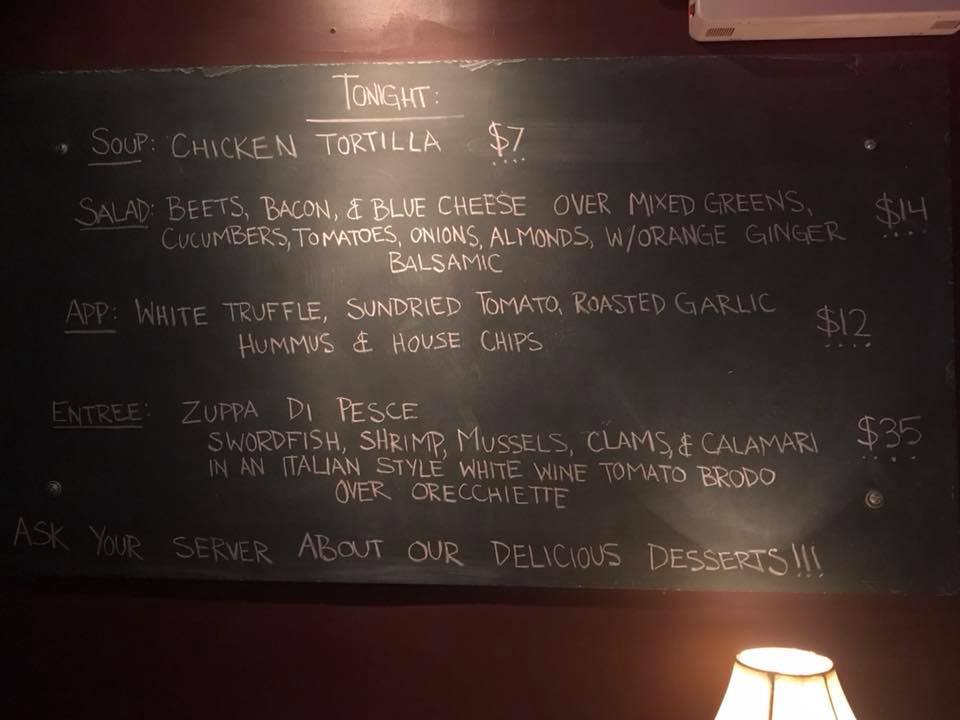 TONIGHT:
SOUP: CHICKEN TORTILLA $7
SALAD: BEETS, BACON, & BLUE CHEESE OVER MIXED GREENS, $14
CUCUMBERS, TOMATOES, ONIONS, ALMONDS, W/ORANGE GINGER
BALSAMIC
APP: WHITE TRUFFLE, SUNDRIED TOMATO, ROASTED GARLIC $12
HUMMUS & HOUSE CHIPS
ENTREE: ZUPPA DI PESCE
SWORDFISH, SHRIMP, MUSSELS, CLAMS, & CALAMARI $35
IN AN ITALIAN STYLE WHITE WINE TOMATO BRODO
OVER ORECCHIETTE
ASK YOUR SERVER ABOUT OUR DELICIOUS DESSERTS!!!